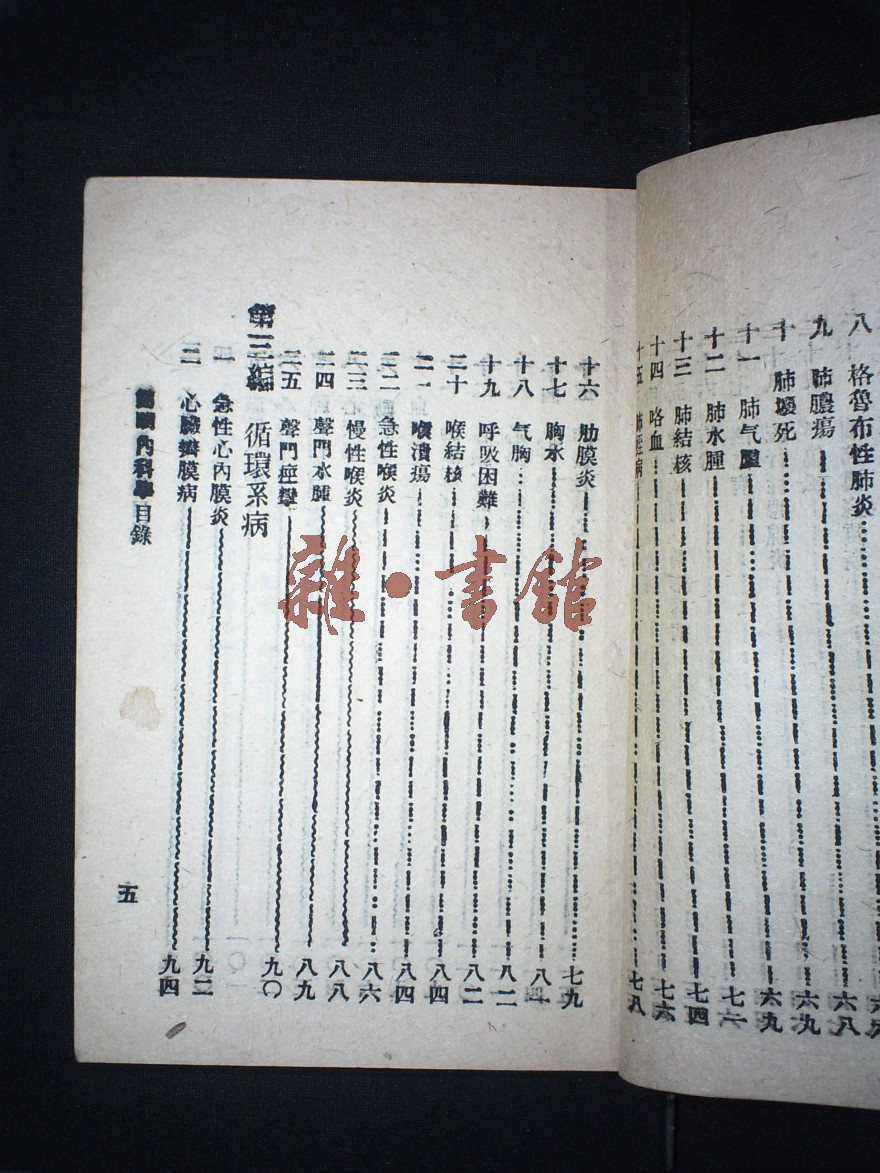 八 格魯布性肺炎 六八
九 肺膿瘍 六八
十 肺壞死 六九
十一 肺气腫 六九
十二 肺水腫 七一
十三 肺結核 七四
十四 咯血 七六
十五 肺 病 七八
十六 肋膜炎 七九
十七 胸水 八一
十八 气胸 八二
十九 呼吸困難 八二
二十 喉結核 八四
二一 喉潰瘍 八四
二二 急性喉炎 八六
二三 慢性喉炎 八八
二四 聲門水腫 八九
二五 聲門痙攣 九〇
第三編 循環系病
一 急性心內膜炎 九二
二 心臟瓣膜病 九四
簡明內科學目錄 五
雜·書館